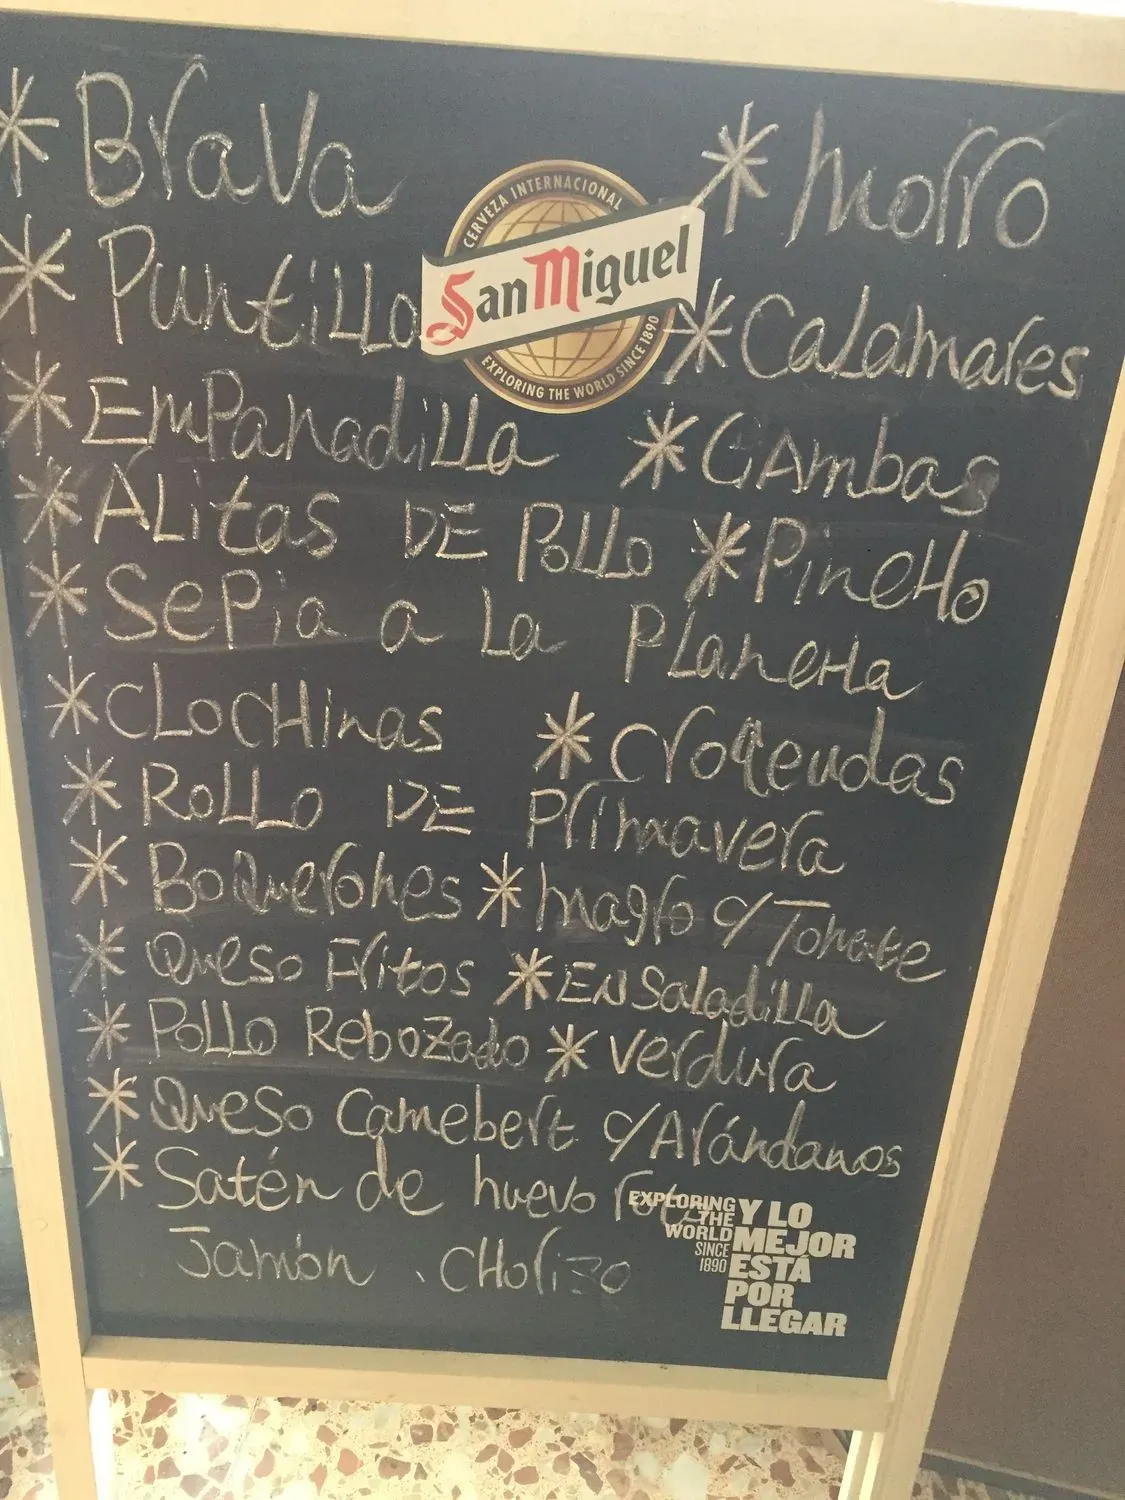 * Brava * Morro
CERVEZA INTERNACIONAL
San Miguel
EXPLORING THE WORLD SINCE 1890
* Puntilla * Calamares
* Empanadilla * Gambas
* Alitas DE Pollo * Pincho
* Sepia a La PlancHa
* CLocHinas * Croqeudas
* RoLLo DE Primavera
* Boquerones * magro c/ Tomate
* Queso Fritos * ENSaladilla
* Pollo Rebozado * verdura
* Queso Camebert c/ Arándanos
* Satén de huevo roto
Jamón . CHorizo
EXPLORING
THE
WORLD
SINCE
1890
Y LO
MEJOR
ESTÁ
POR
LLEGAR